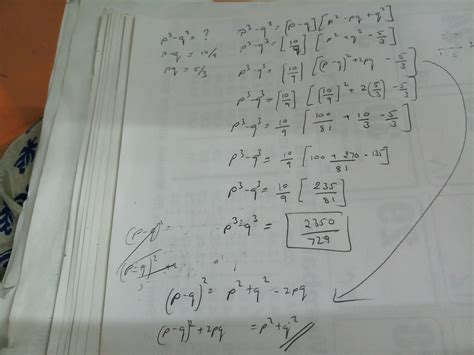 p³-q³ = ?
p-q = 10/9
pq = 5/3
p³-q³ = [p-q][p²-pq+q²]
p³-q³ = [10/9] [p²+q² - 5/3]
p³-q³ = [10/9] [(p-q)²+2pq - 5/3]
p³-q³ = [10/9] [[10/9]² + 2(5/3) - 5/3]
p³-q³ = 10/9 [100/81 + 10/3 - 5/3]
p³-q³ = 10/9 [100 + 270 - 135 / 81]
p³-q³ = 10/9 [235/81]
p³-q³ = 2350/729
(p-q)² =
(p-q)² +
(p-q)² = p²+q² - 2pq
(p-q)²+2pq = p²+q²